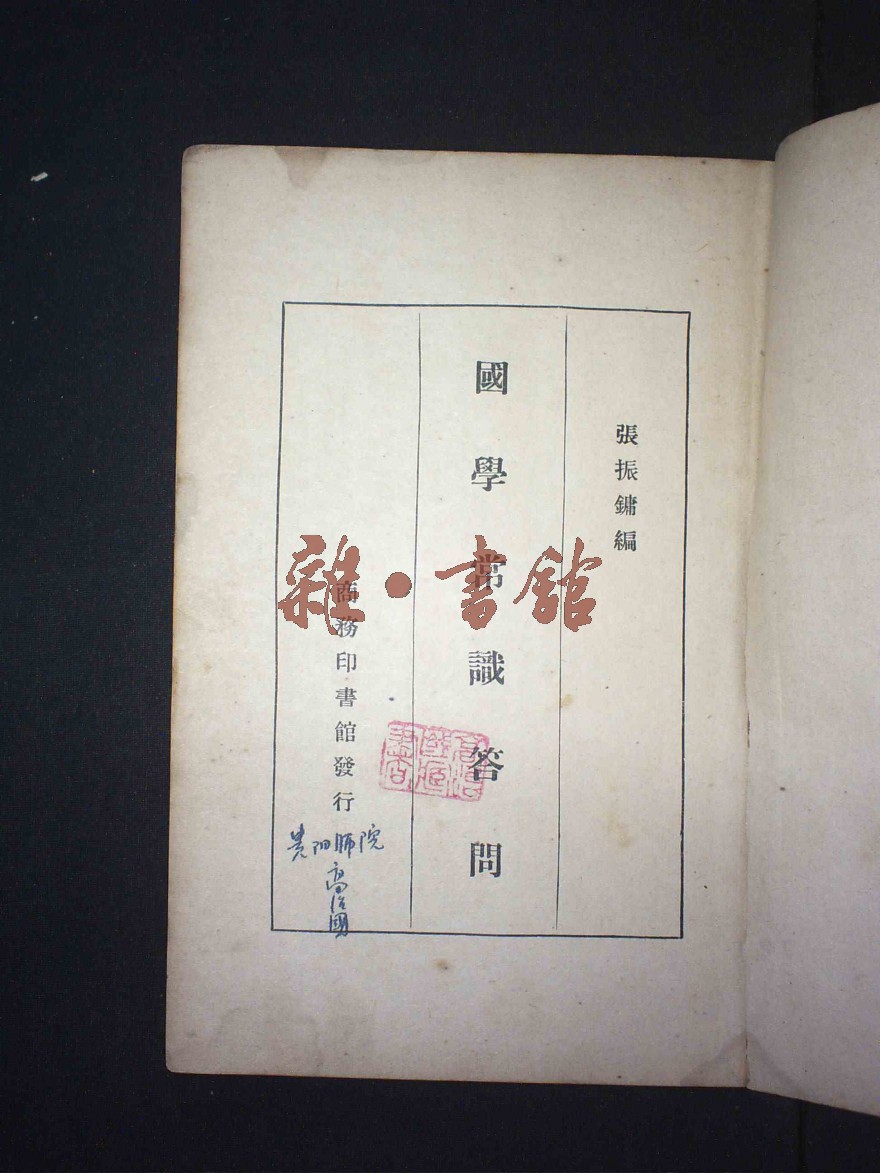 張振鏞編
國學常識答問
商務印書館發行
雜·書館
貴陽師院
高治國